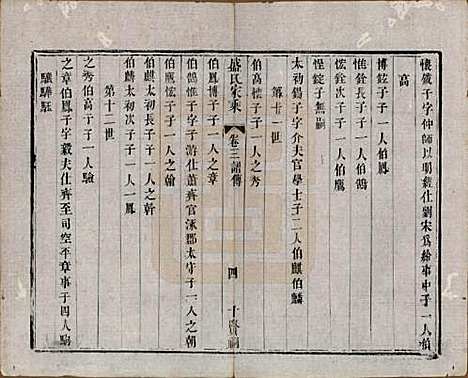 懷鐬子字仲師以明經仕劉宋爲給事中子一人伯
高
博鉉子子一人伯鳳
惟銓子子一人伯鶴
炫銓次子子一人伯鷹
惺錠子無嗣
太初錫子字介夫官學士子二人伯麒伯麟
第十一世
伯高懷子子一人之秀
盛氏家乘
卷三諸傳
四
伯鳳博子子一人之章
伯鷹炫子子一人之翰
伯鶴惟子子字仕蕭齊官涿郡太守子一人之朝
伯麒太初長子子一人之幹
伯麟太初次子子一人鳳
第十二世
之秀伯高子子一人驗
之章伯鳳子字毅夫仕齊至司空平章事子四人騊
驤驊駐